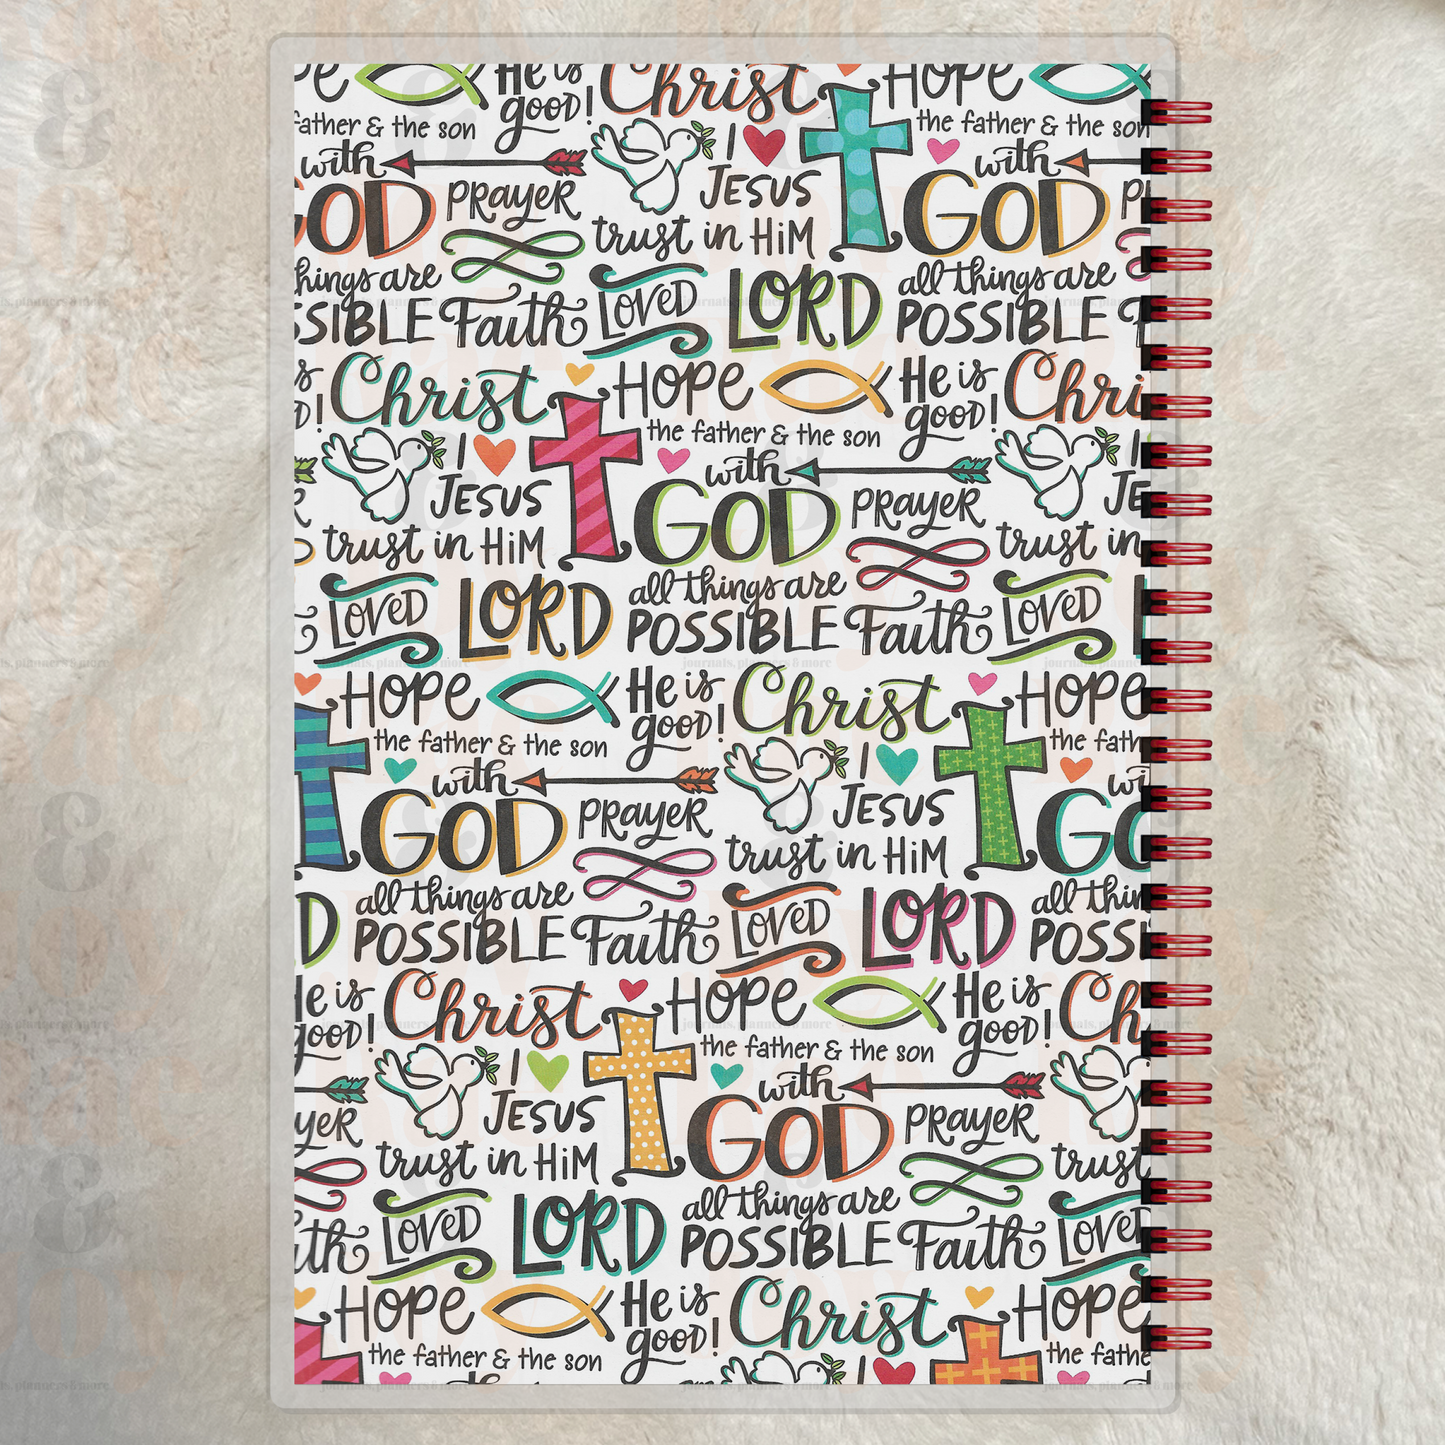 He is Christ HOPE
good!
father & the son the father & the son
with I with
GOD PRAYER JESUS GOD
trust in HiM
things are LOVED LORD all things are
Faith POSSIBLE
Christ HOPE He is
good!
the father & the son
I with
JESUS GOD PRAYER JE
trust in HiM trust in
LOVED LORD all things are LOVED
POSSIBLE Faith
HOPE He is Christ HOPE
good!
the father & the son the
with I
GOD PRAYER JESUS
trust in HiM
all things are LOVED LORD all
POSSIBLE Faith
is Christ HOPE He is
good! good!
the father & the son
I with
JESUS GOD PRAYER
trust in HiM trust
LOVED LORD all things are LOVED
POSSIBLE Faith
HOPE He is Christ HOPE
good!
the father & the son the
I
journals, planners & more